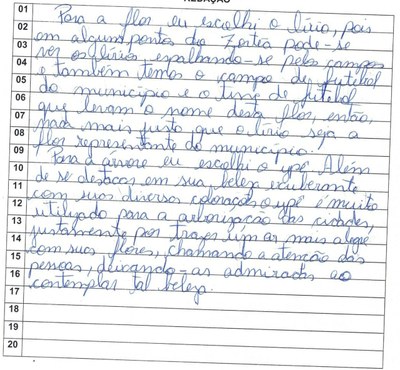 REDAÇÃO
01 Para a flor eu escolhi o lírio, pois
02 em alguns pontos do pode-se
03 ver os lírios espalhando-se pelos campos
04 e também temos o campo de futebol
05 do município e o time de futebol
06 que levam o nome desta flor, então,
07 nada mais justo que o lírio seja a
08 flor representante do município.
09 Para árvore eu escolhi o ipê. Além
10 de se destacar em sua beleza exuberante
11 com suas diversas colorações o ipê é muito
12 utilizado para a arborização das cidades,
13 justamente por trazer um ar mais alegre
14 com suas flores, chamando a atenção das
15 pessoas, deixando-as admiradas ao
16 contemplar tal beleza.
17
18
19
20